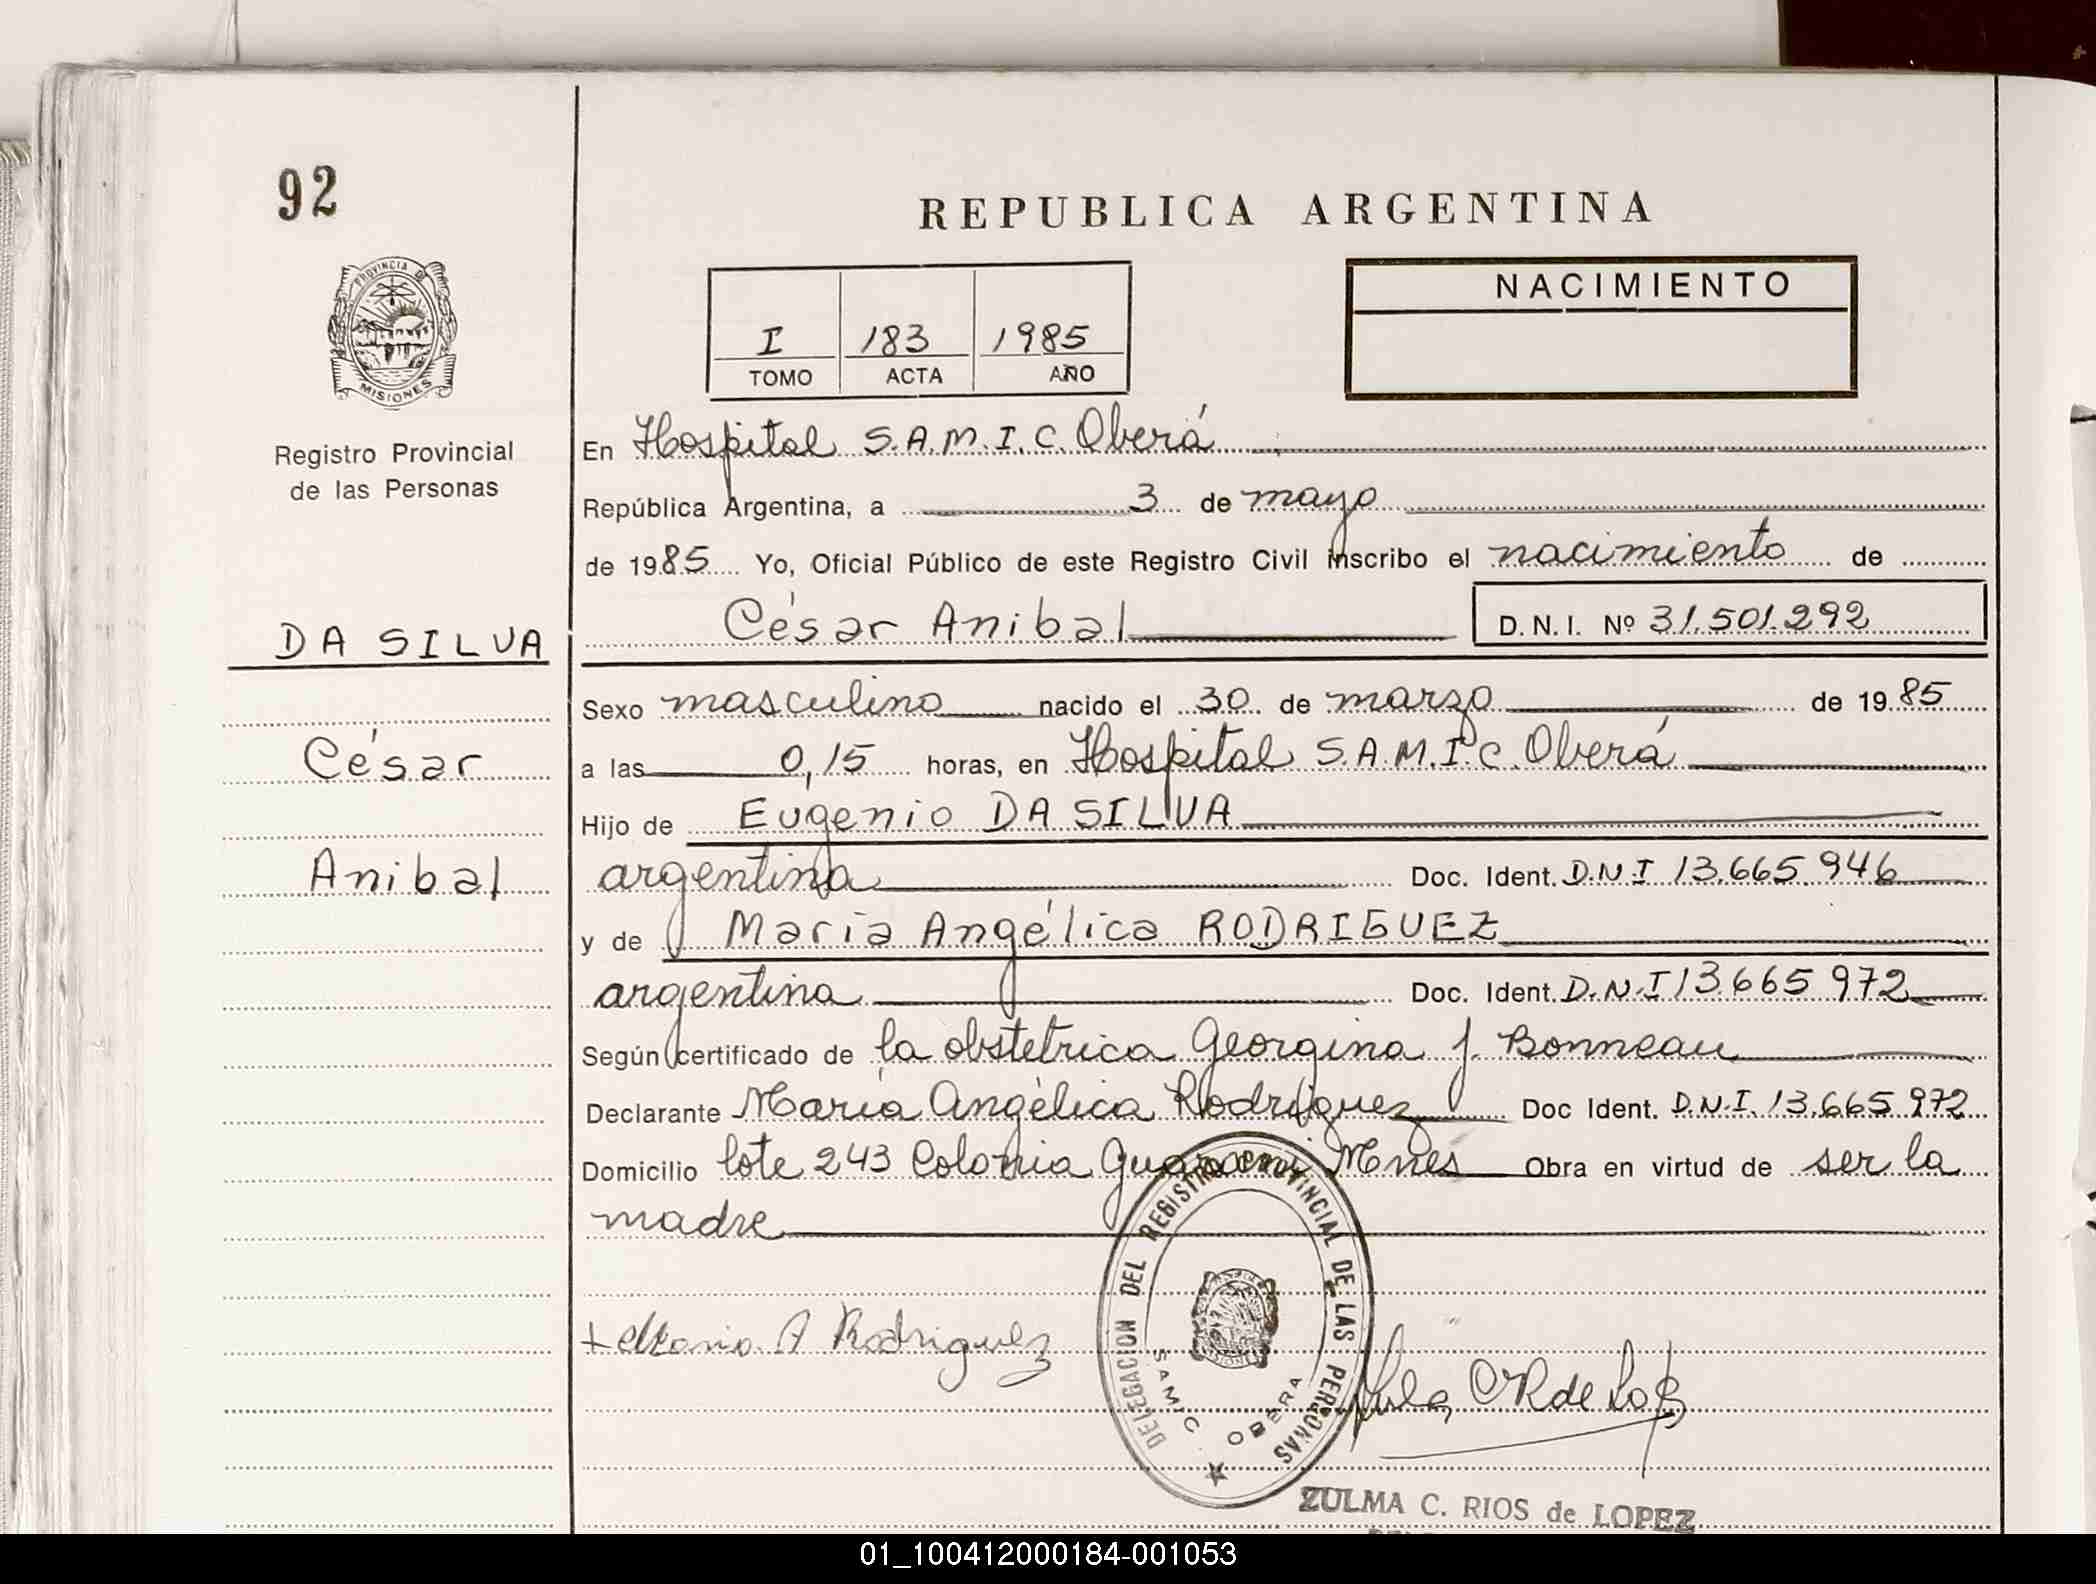 92
REPUBLICA ARGENTINA
PROVINCIA DE
MISIONES
I 183 1985
TOMO ACTA AÑO
NACIMIENTO
Registro Provincial
de las Personas
En Hospital S.A.M.I.C. Oberá
República Argentina, a 3 de mayo
de 1985 Yo, Oficial Público de este Registro Civil inscribo el nacimiento de
César Anibal D.N.I. Nº 31.501.292
DA SILVA
César
Anibal
Sexo masculino nacido el 30 de marzo de 1985
a las 0,15 horas, en Hospital S.A.M.I.C. Oberá
Hijo de Eugenio DA SILVA
argentina Doc. Ident. D.N.I 13.665.946
y de María Angélica RODRIGUEZ
argentina Doc. Ident. D.N.I 13.665 972
Según certificado de la obstetrica Georgina J. Bonneau
Declarante María Angélica Rodríguez Doc Ident. D.N.I. 13.665 972
Domicilio lote 243 Colonia Guaraní Mnes Obra en virtud de ser la
madre
DELEGACION DEL REGISTRO PROVINCIAL DE LAS PERSONAS
SAMIC OBERA
A Rodriguez
ZULMA C. RIOS de LOPEZ
01_100412000184-001053